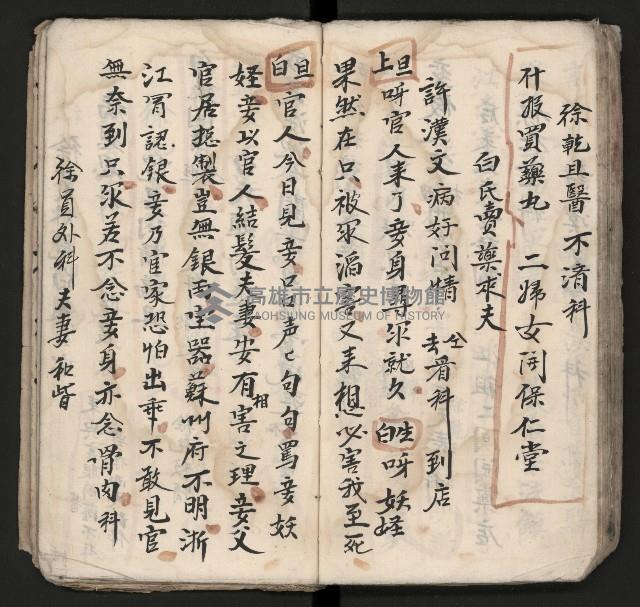 徐乾旦醫 不清科
什报買藥丸 二婦女開保仁堂
白氏賣藥求夫
許漢文病好问情 仝去看科到店
上 旦 呀官人来了妾身尋尔就久 生白 呀妖怪
果然在只被尔滔宦又来想必害我至死
旦白 官人今日見妾口声〻句句罵妾妖
妖妾以官人結髮夫妻安有相害之理妾父
官居提製豈無銀両宝器蘇州府不明浙
江冐認銀妾乃官家恐怕出乖不敢見官
無奈到只尔若不念妾身亦念骨肉科
徐員外科夫妻和皆
高雄市立歷史博物館
KAOHSIUNG MUSEUM OF HISTORY